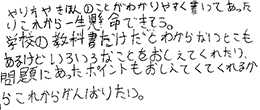 やり方やきほんのことがわかりやすく書いてあった
りこれから一生懸命できそう。
学校の教科書だけだとわからないとこも
あるけどいろいろなことをおしえてくれたり、
問題にあったポイントもおしえてくてくれるか
らこれからがんばりたい。